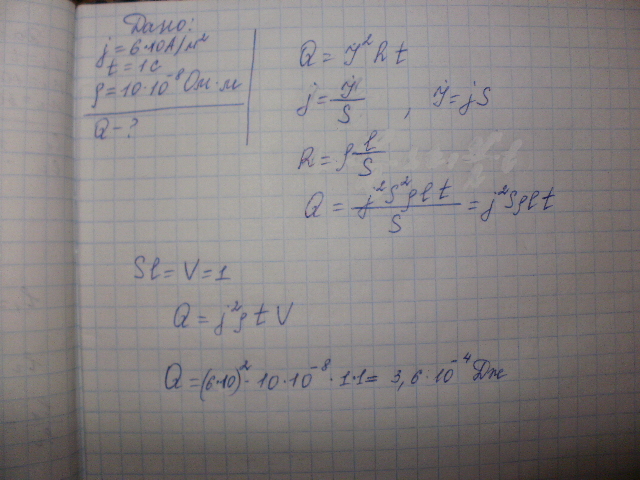 Дано:
j = 6·10 А/м²
t = 1 с
ρ = 10·10⁻⁸ Ом·м
Q - ?
Q = I² R t
j = I/S , I = jS
R = ρ l/S
Q = j²S²ρlt/S = j²Sρlt
Sl = V = 1
Q = j²ρtV
Q = (6·10)²·10·10⁻⁸·1·1 = 3,6·10⁻⁴ Дж